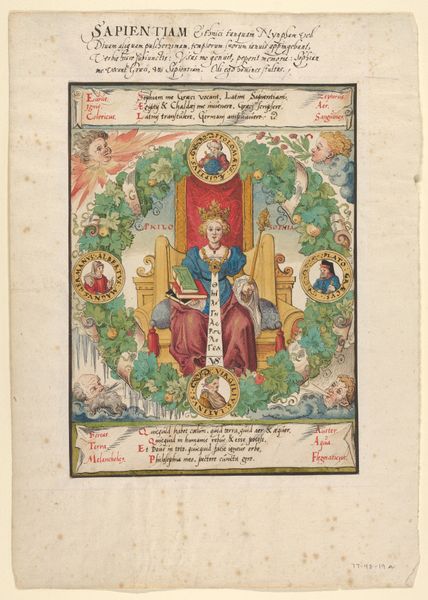 SAPIENTIAM Ethnici tanquam Nympham vel
Divam aliquam pulcherrimam, templorum suorum ianuis appingebant,
Verba hæc subiunctis. Vsus me genuit, peperit memoria: Sophian
me vocant Graci, vos Sapientiam.
Eurus.
Ignis.
Colericus.
Sophiam me Græci vocant, Latini Sapientiam,
Ægipty & Chaldæj me invenere, Græci scripsere
Latinj transtulere, Germani ampliavere.
Zephirus.
Aer.
Sanguineus.
PTOLOMÆVS
PHILO SOPHIA
GERMANVS · ALBERTVS MAGNVS
PLATO
VIRGILIVS LATINVS
Boreas
Terra
Melancholicus
Quicquid habet cœlum, quid terra, quid aer & æquor,
Quicquid in humanis rebus & esse potest,
Et Deus in toto quicquid facit igneus orbe,
Philosophia meo pectore cuncta gero.
Auster.
Aqua
Flegmaticus.
77-42-19 a